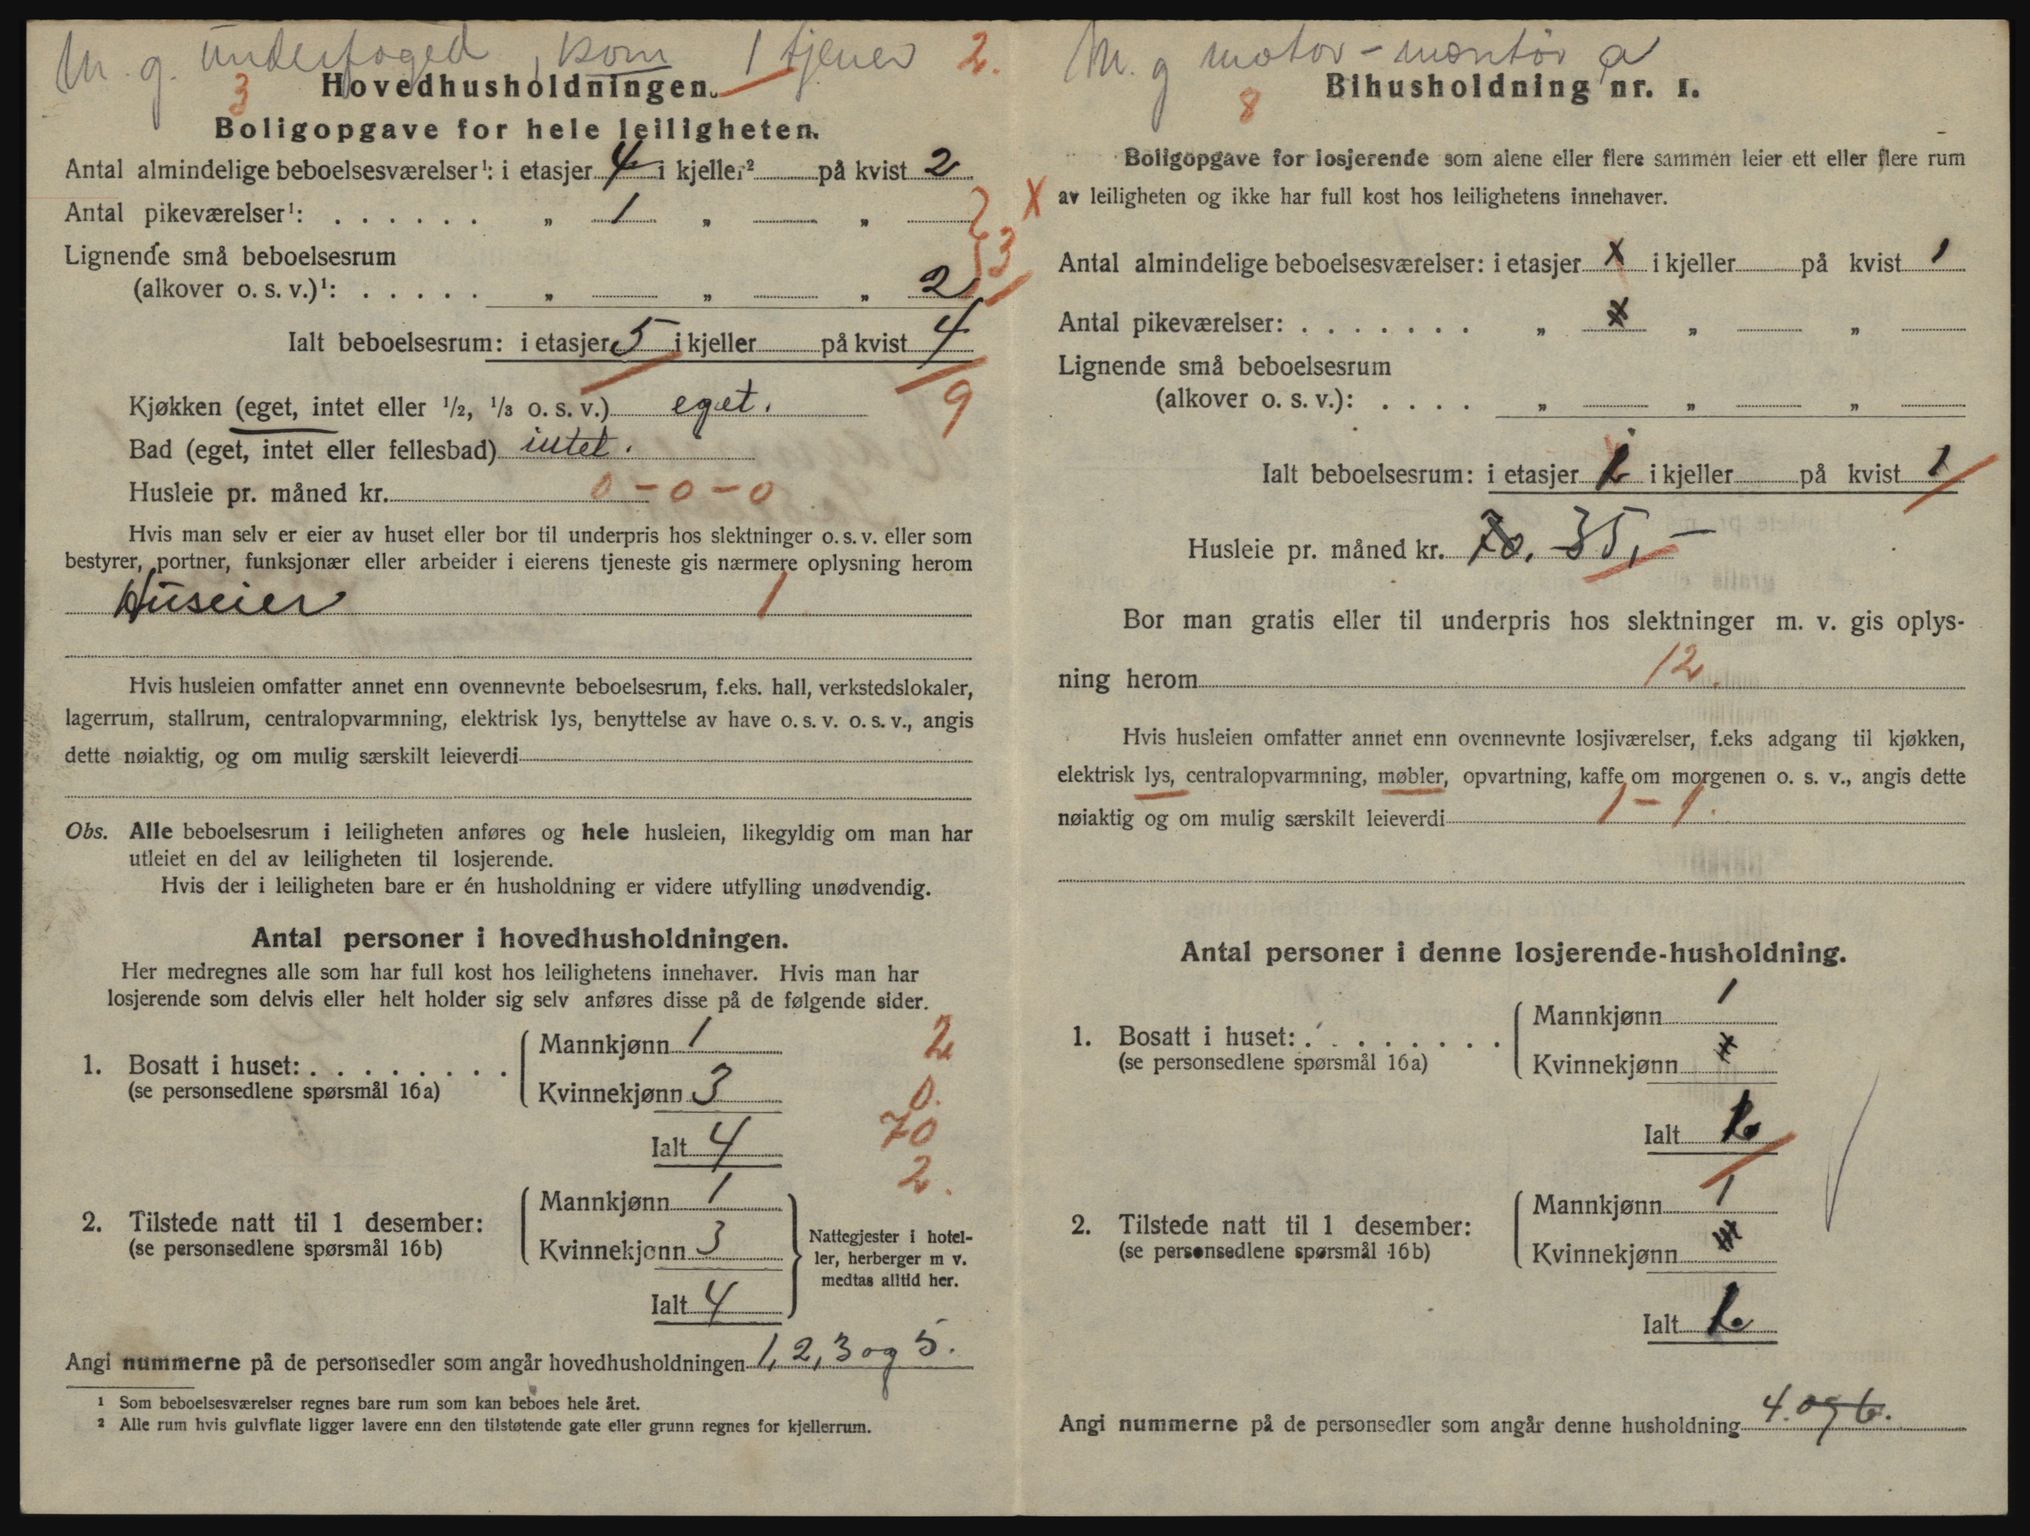 M. g. underfoged, kom 1 tjener 2.
3 Hovedhusholdningen.
Boligopgave for hele leiligheten.
Antal almindelige beboelsesværelser¹: i etasjer 4 i kjeller² på kvist 2
Antal pikeværelser¹: . . . . . . „ 1 „ „
Lignende små beboelsesrum 3
(alkover o. s. v.)¹: . . . . . „ „ „ 2
Ialt beboelsesrum: i etasjer 5 i kjeller på kvist 4
Kjøkken (eget, intet eller 1/2, 1/3 o. s. v.) eget. 9
Bad (eget, intet eller fellesbad) intet.
Husleie pr. måned kr. 0 - 0 - 0
Hvis man selv er eier av huset eller bor til underpris hos slektninger o. s. v. eller som
bestyrer, portner, funksjonær eller arbeider i eierens tjeneste gis nærmere oplysning herom
Huseier 1
Hvis husleien omfatter annet enn ovennevnte beboelsesrum, f.eks. hall, verkstedslokaler,
lagerrum, stallrum, centralopvarmning, elektrisk lys, benyttelse av have o. s. v. o. s. v., angis
dette nøiaktig, og om mulig særskilt leieverdi
Obs. Alle beboelsesrum i leiligheten anføres og hele husleien, likegyldig om man har
utleiet en del av leiligheten til losjerende.
Hvis der i leiligheten bare er én husholdning er videre utfylling unødvendig.
Antal personer i hovedhusholdningen.
Her medregnes alle som har full kost hos leilighetens innehaver. Hvis man har
losjerende som delvis eller helt holder sig selv anføres disse på de følgende sider.
1. Bosatt i huset: . . . . . . . .
(se personsedlene spørsmål 16a)
Mannkjønn 1 2
Kvinnekjønn 3 0.
Ialt 4 70
2.
2. Tilstede natt til 1 desember:
(se personsedlene spørsmål 16b)
Mannkjønn 1
Kvinnekjønn 3
Ialt 4
Nattegjester i hotel-
ler, herberger m v.
medtas alltid her.
Angi nummerne på de personsedler som angår hovedhusholdningen 1, 2, 3 og 5.
¹ Som beboelsesværelser regnes bare rum som kan beboes hele året.
² Alle rum hvis gulvflate ligger lavere enn den tilstøtende gate eller grunn regnes for kjellerrum.
M. g motor-montør a
8 Bihusholdning nr. 1.
Boligopgave for losjerende som alene eller flere sammen leier ett eller flere rum
x av leiligheten og ikke har full kost hos leilighetens innehaver.
Antal almindelige beboelsesværelser: i etasjer x i kjeller på kvist 1
Antal pikeværelser: . . . . . . . „ x „ „
Lignende små beboelsesrum
(alkover o. s. v.): . . . . „ „ „
Ialt beboelsesrum: i etasjer i kjeller på kvist 1
Husleie pr. måned kr. 70. 35,-
Bor man gratis eller til underpris hos slektninger m. v. gis oplys-
ning herom 12.
Hvis husleien omfatter annet enn ovennevnte losjiværelser, f.eks adgang til kjøkken,
elektrisk lys, centralopvarmning, møbler, opvartning, kaffe om morgenen o. s. v., angis dette
nøiaktig og om mulig særskilt leieverdi 1 - 1.
Antal personer i denne losjerende-husholdning.
1. Bosatt i huset: . . . . . . . .
(se personsedlene spørsmål 16a)
Mannkjønn 1
Kvinnekjønn
Ialt
2. Tilstede natt til 1 desember:
(se personsedlene spørsmål 16b)
Mannkjønn 1
Kvinnekjønn
Ialt
Angi nummerne på de personsedler som angår denne husholdning 4. og 6.